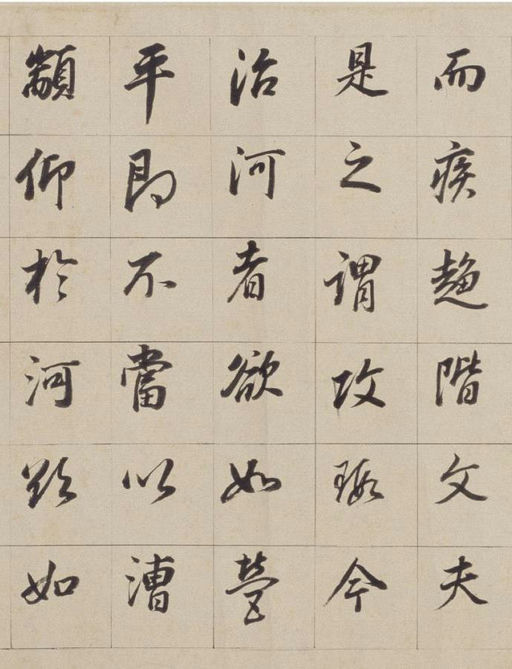 而疾趨階文夫
是之謂攻瑕今
治河者欲如營
平即不當以漕
顓仰於河如